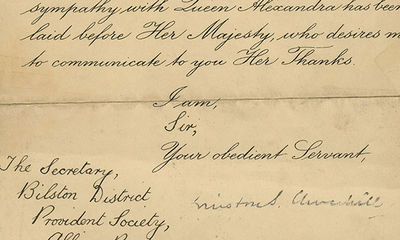 sympathy with Queen Alexandra has been
laid before Her Majesty, who desires m
to communicate to you Her Thanks.
I am,
Sir,
Your obedient Servant,
Winston S. Churchill
The Secretary,
Bilston District
Provident Society,